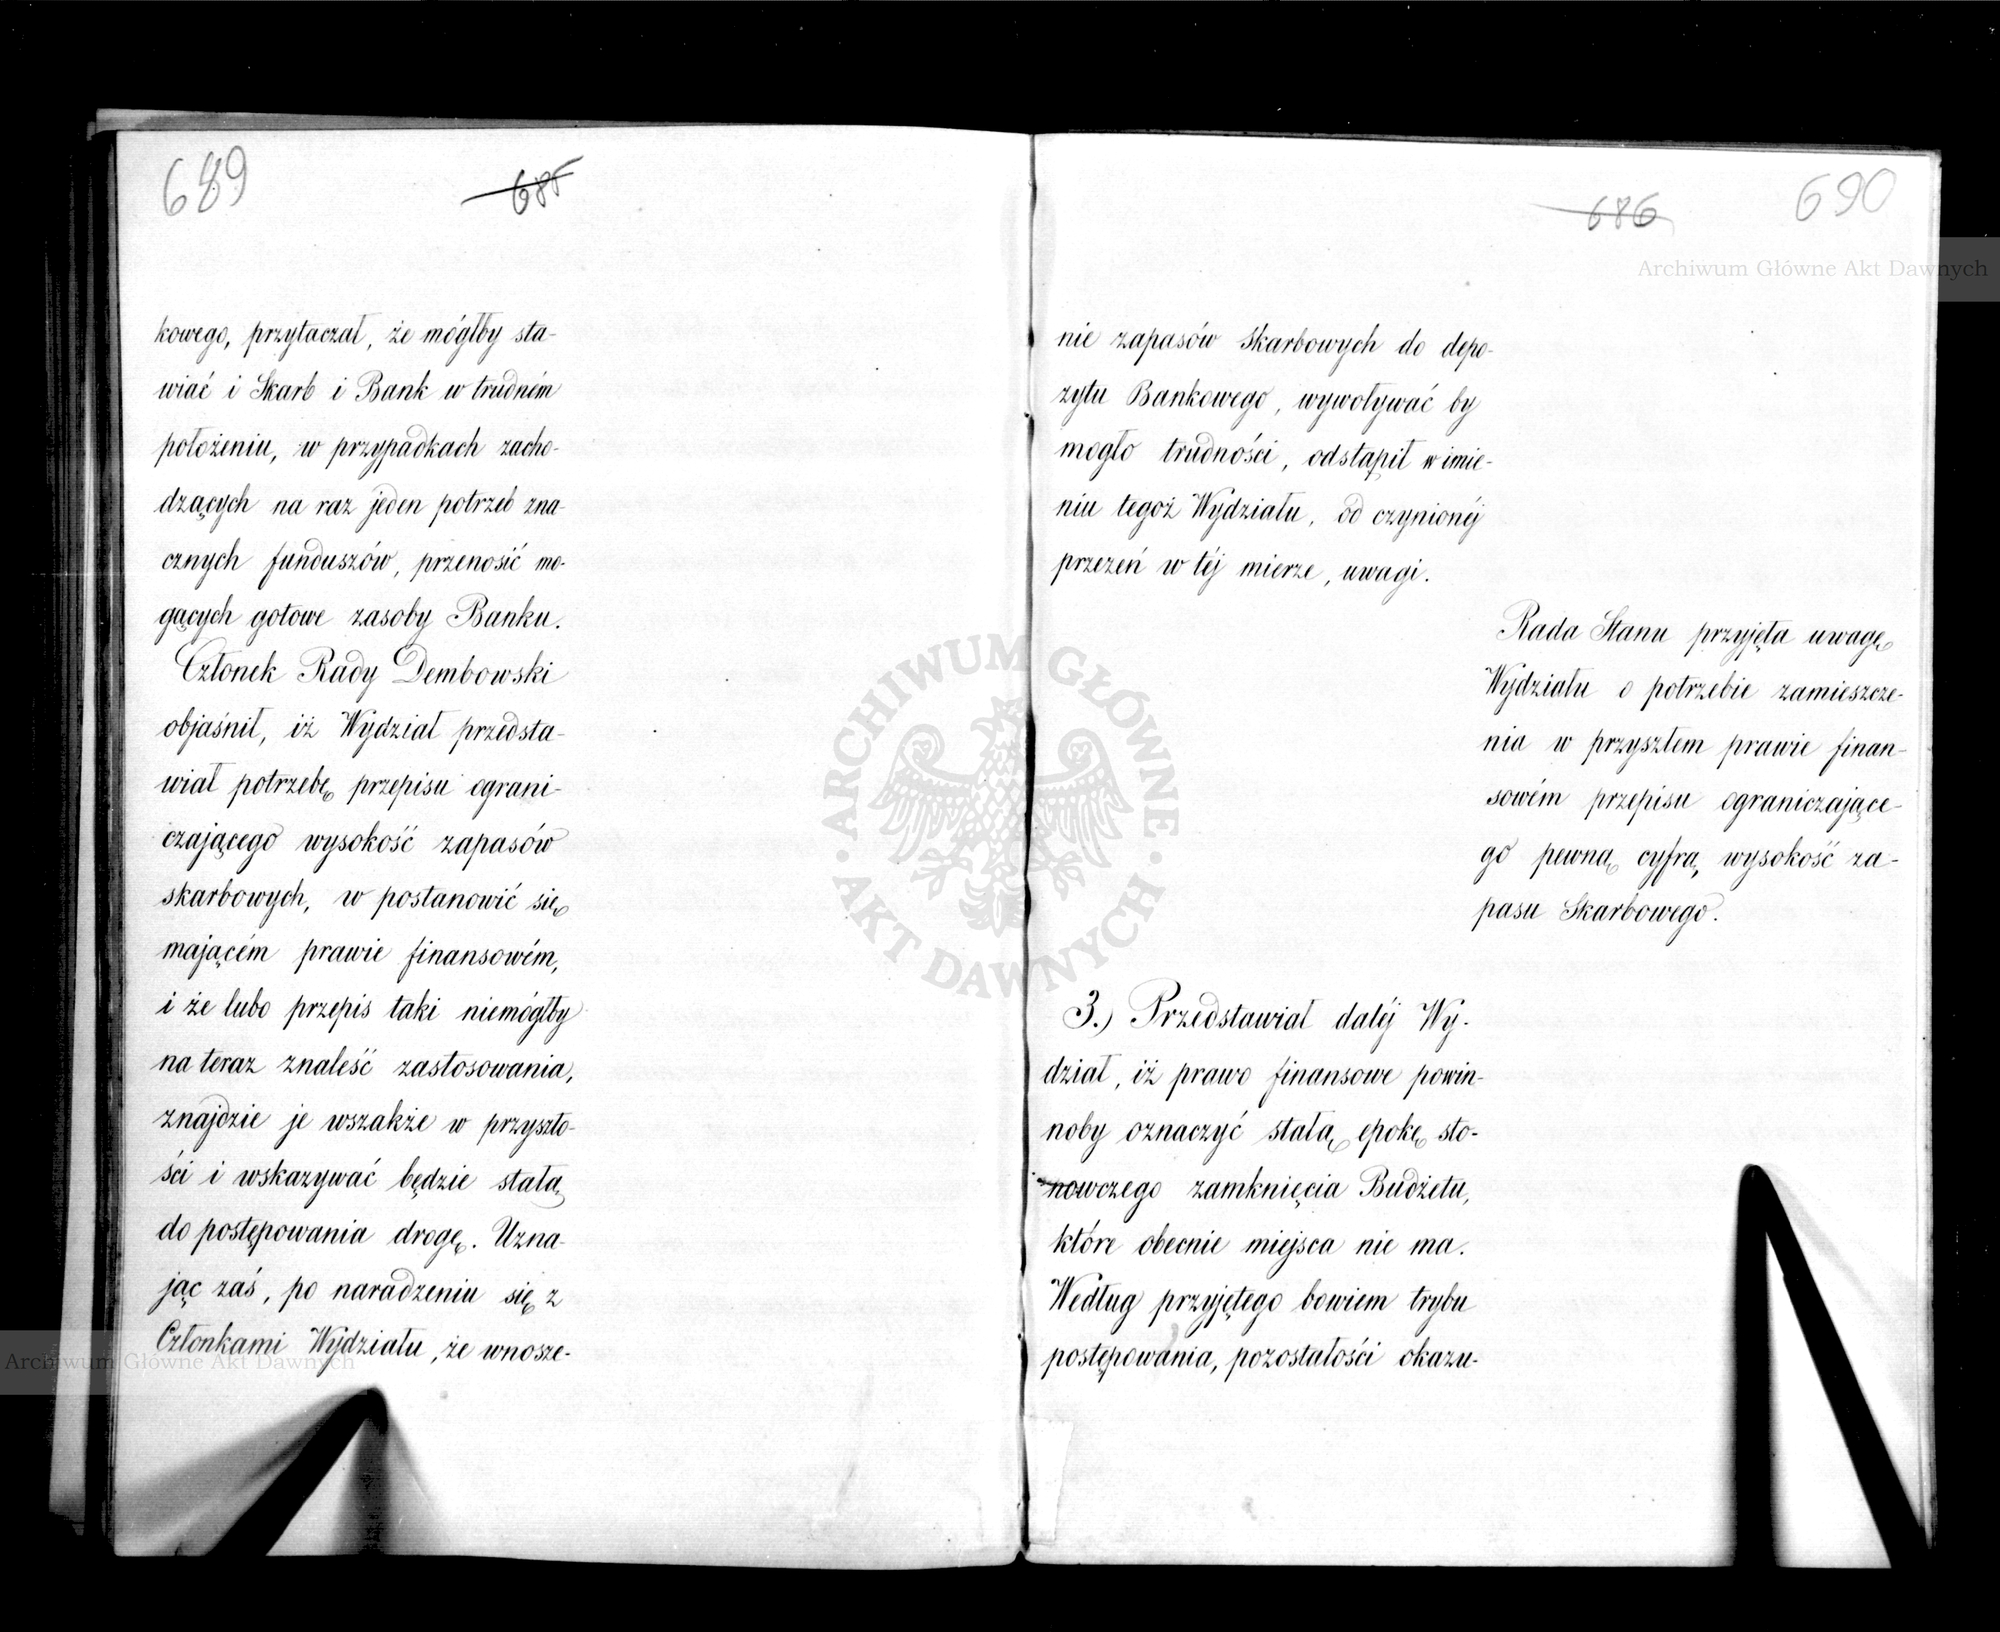 689
685
kowego, przytaczał, że mógłby sta-
wiać i Skarb i Bank w trudném
położeniu, w przypadkach zacho-
dzących na raz jeden potrzeb zna-
cznych funduszów, przenosić mo-
gących gotowe zasoby Banku.
Członek Rady Dembowski
objaśnił, iż Wydział przedsta-
wiał potrzebę przepisu ograni-
czającego wysokość zapasów
skarbowych, w postanowić się
mającém prawie finansowém,
i że lubo przepis taki niemógłby
na teraz znaleść zastosowania,
znajdzie je wszakże w przyszło-
ści i wskazywać będzie stałą
do postępowania drogę. Uzna-
jąc zaś, po naradzeniu się z
Członkami Wydziału, że wnosze-
686
690
nie zapasów Skarbowych do depo-
zytu Bankowego, wywoływać by
mogło trudności, odstąpił w imie-
niu tegoż Wydziału, od czynionéj
przezeń w téj mierze, uwagi.
Rada Stanu przyjęła uwagę
Wydziału o potrzebie zamieszcze-
nia w przyszłem prawie finan-
sowém przepisu ograniczające-
go pewną cyfrą, wysokość za-
pasu Skarbowego.
3.) Przedstawiał daléj Wy-
dział, iż prawo finansowe powin-
noby oznaczyć stałą epokę sto-
nowczego zamknięcia Budżetu,
które obecnie miejsca nie ma.
Według przyjętego bowiem trybu
postępowania, pozostałości okazu-
Archiwum Główne Akt Dawnych
ARCHIWUM GŁÓWNE
AKT DAWNYCH
Archiwum Główne Akt Dawnych